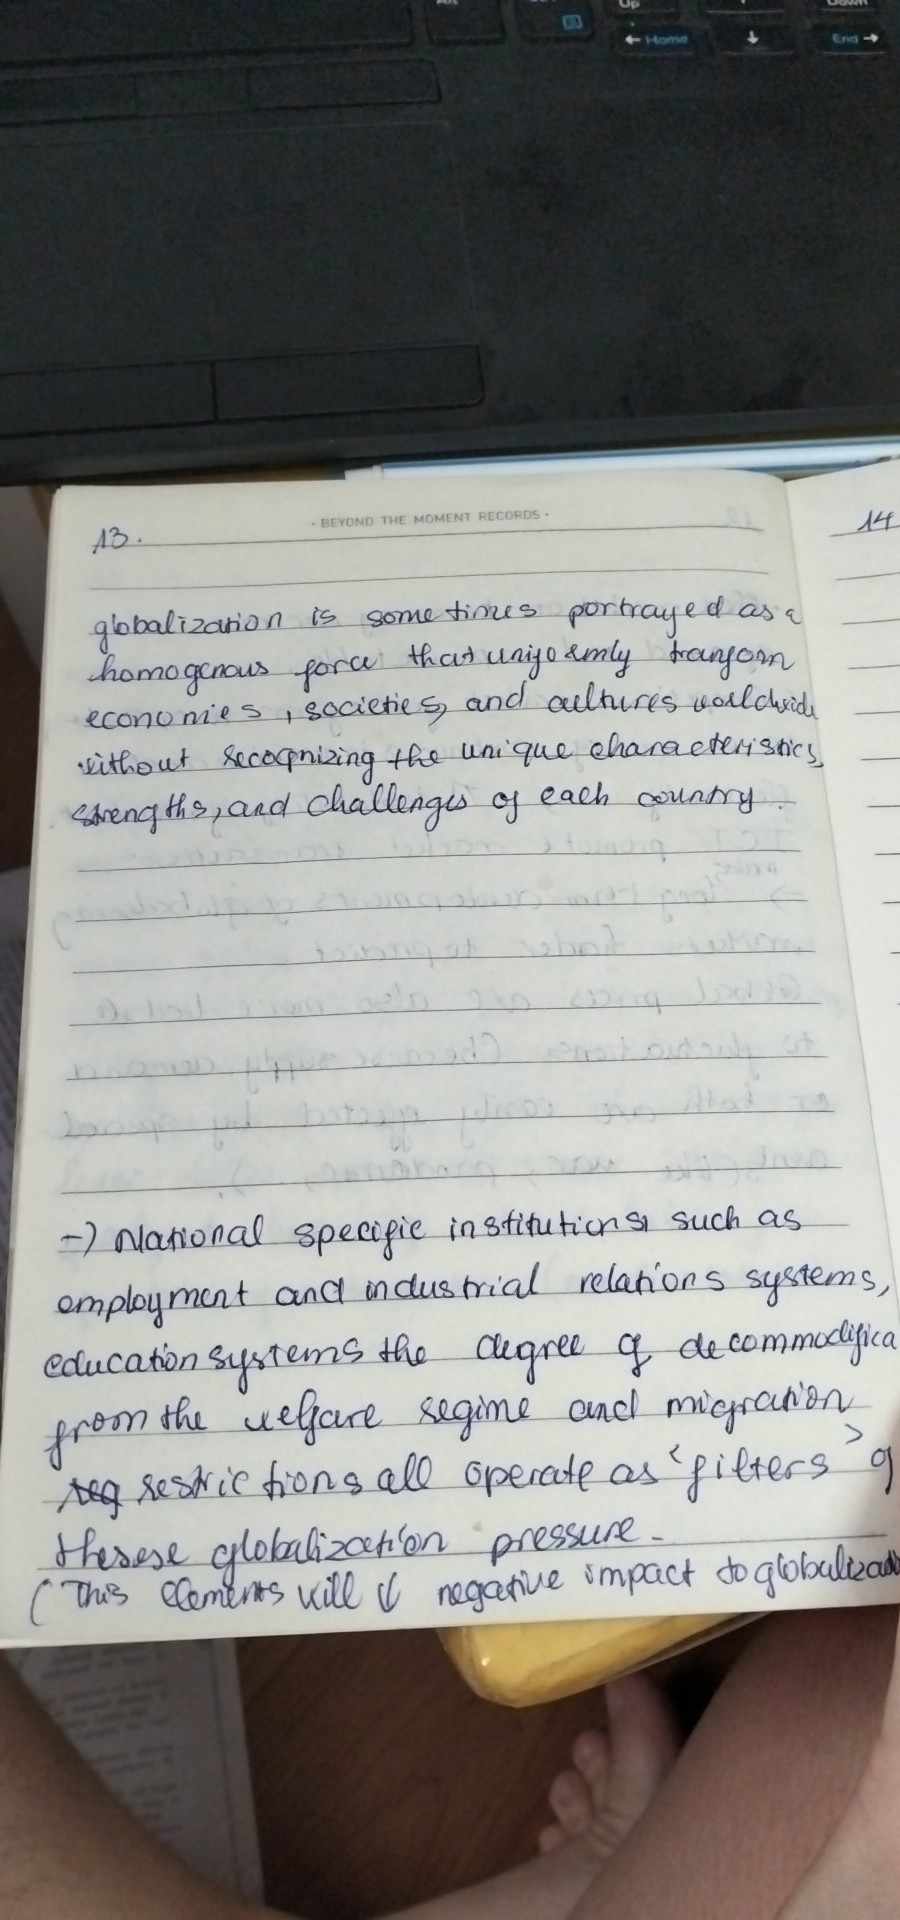 Up
Down
← Home
↓
End →
· BEYOND THE MOMENT RECORDS ·
13.
14
globalization is sometimes portrayed as a
homogenous force that uniformly transform
economies, societies, and cultures worldwide
without recognizing the unique characteristics,
strengths, and challenges of each country.
-) National specific institutions, such as
employment and industrial relations systems,
education systems the degree of decommodifica
from the welfare regime and migration
reg restrictions all operate as 'filters' of
thesese globalization pressure.
( This elements will ↓ negative impact to globalization